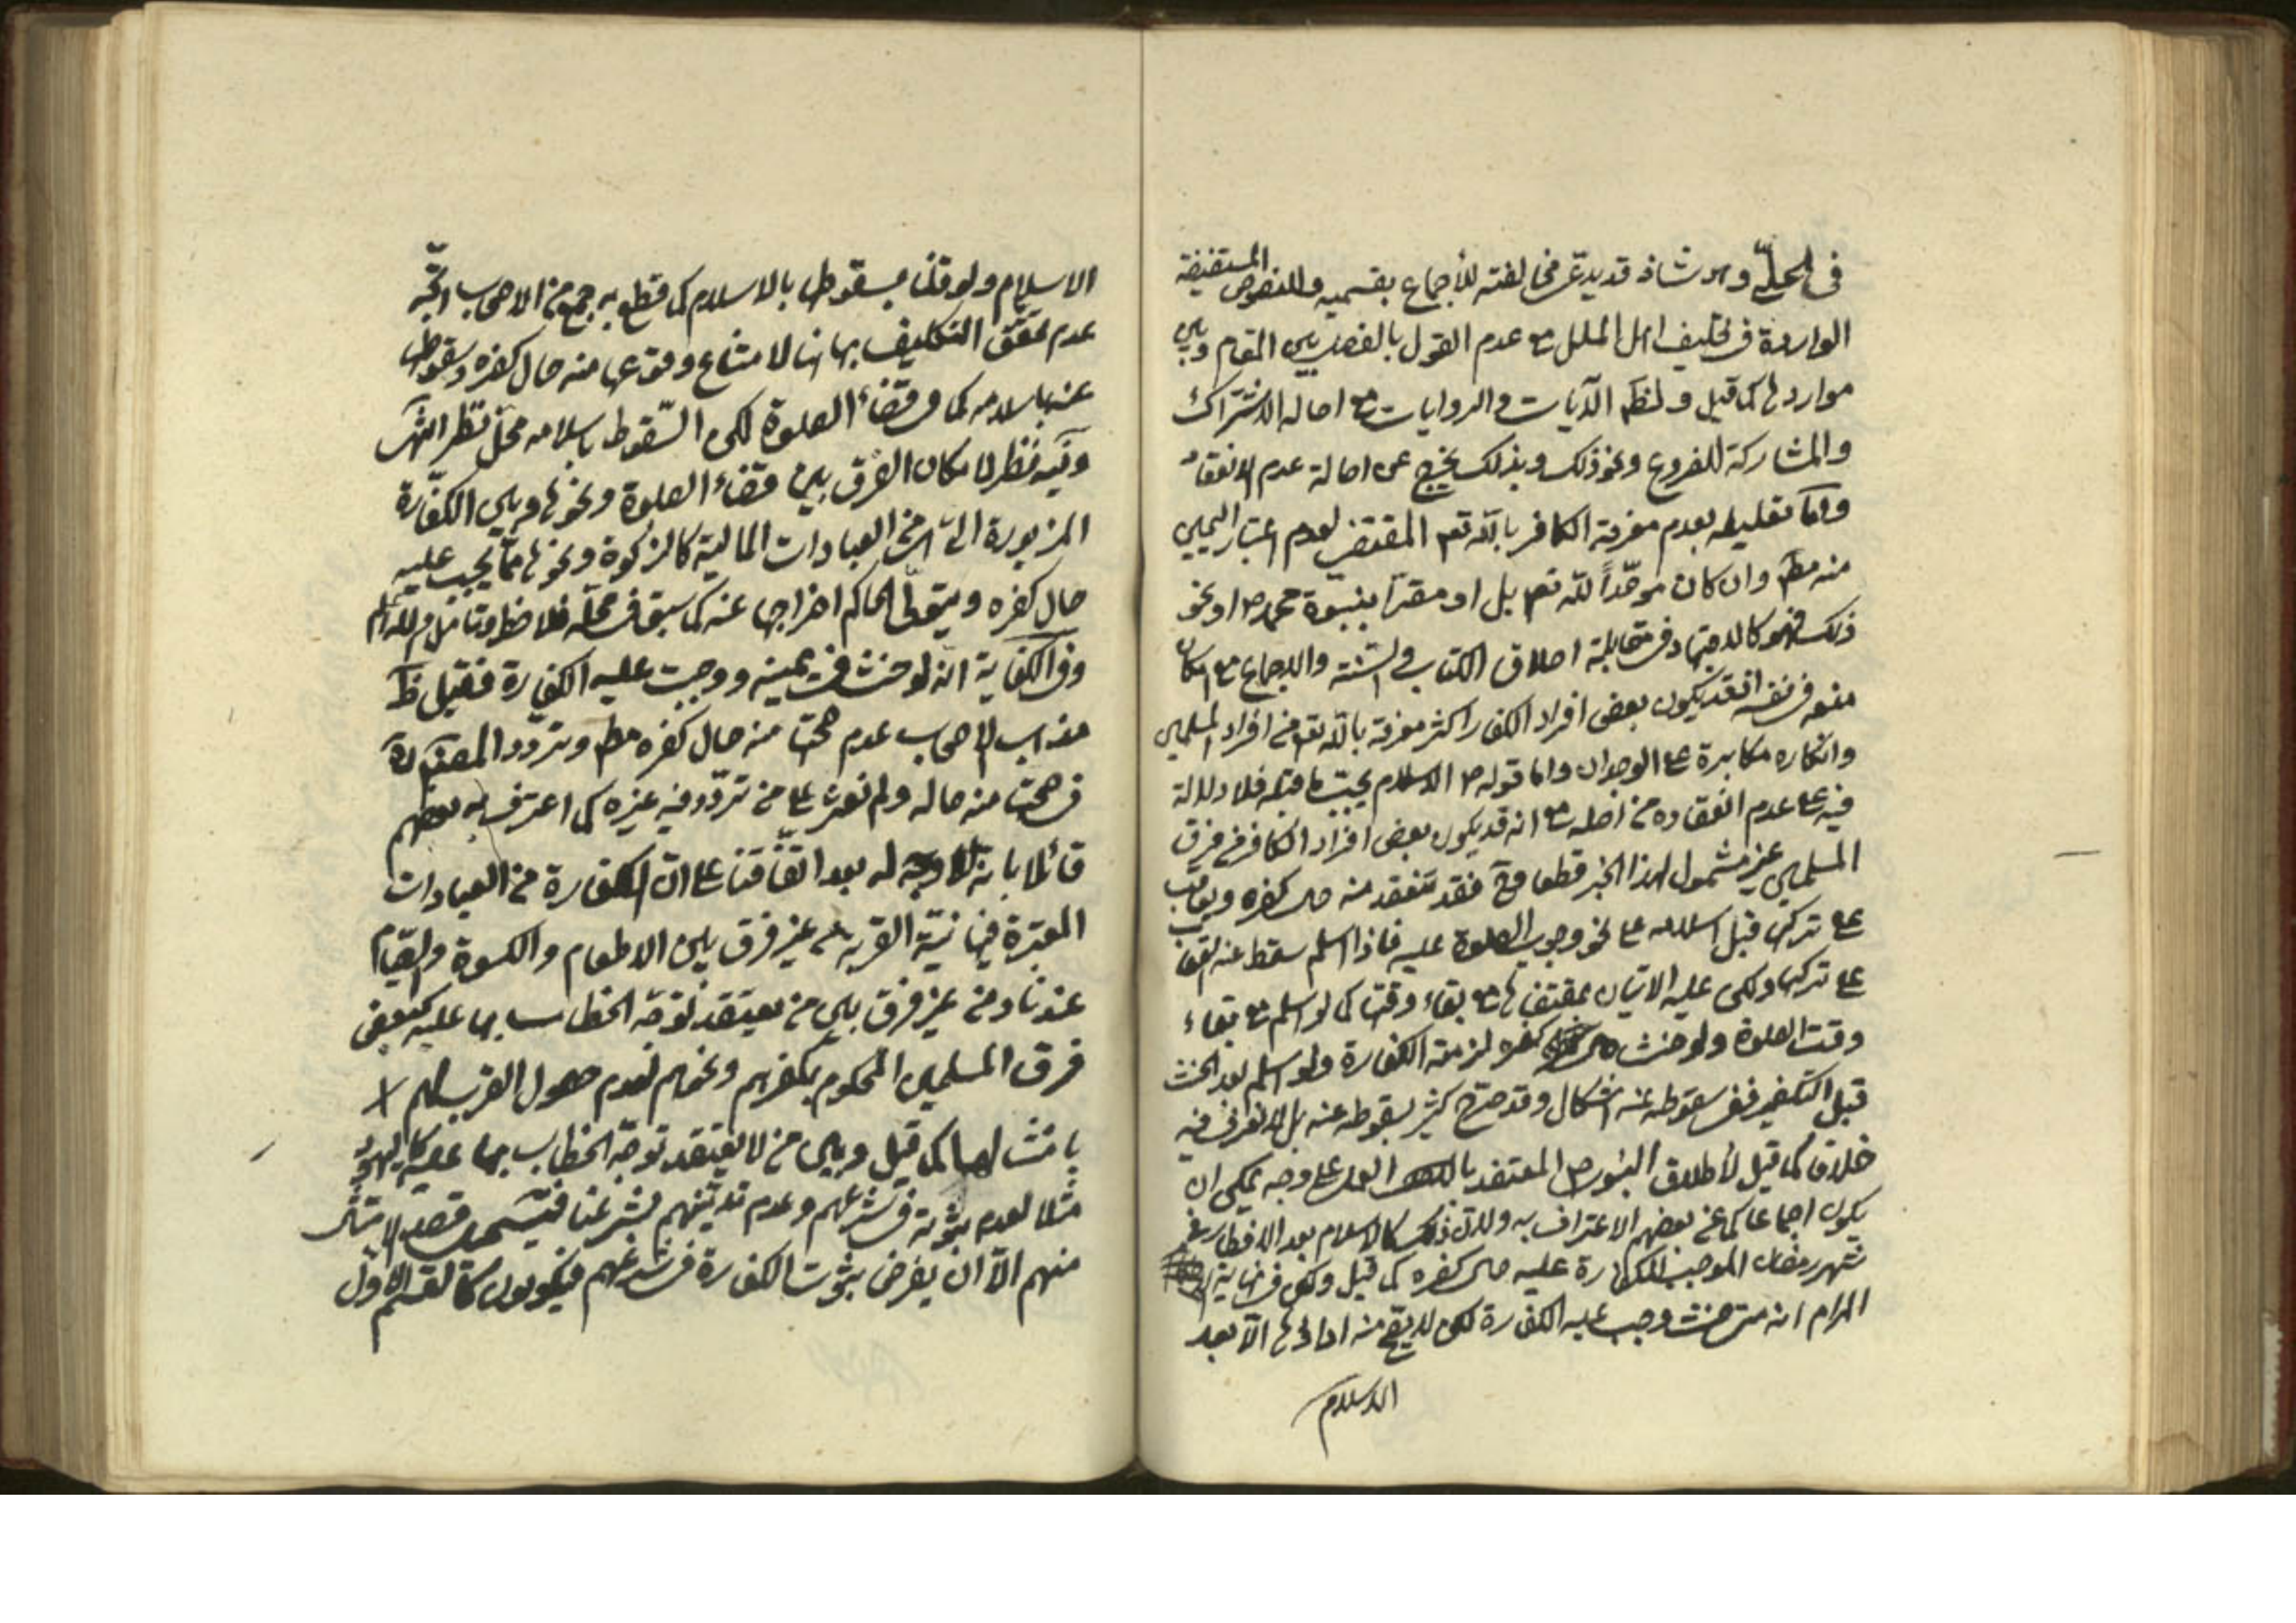 في الحلي وهو شاذ قد يدعى مخالفته للأجماع بقسميه والنصوص المستفيضة
الواردة في تحليف اهل الملل مع عدم القول بالفصل بين المقام وبين
مواردها كما قيل ولظهر الآيات والروايات مع اصالة الاشتراك
والمشاركة للفروع ونحو ذلك وبذلك يخرج عن اصالة عدم الانعقاد
واما تعليله بعدم معرفة الكافر بالله تعم المقتضي لعدم اعتبار اليمين
منه مط وان كان موحّداً لله تعم بل او مقرّا بنبوّة محمد ص او نحو
ذلك فهو كالاجتهاد في مقابلة اطلاق الكتاب والسنّة والاجماع مع امكان
منعه في نفسه اذ قد يكون بعض افراد الكفار اكثر معرفة بالله تعم من افراد المسلمين
وانكاره مكابرة على الوجدان واما قوله ص الاسلام يجب ما قبله فلا دلالة
فيه على عدم انعقاده من اصله مع انه قد يكون بعض افراد الكافر من فرق
المسلمين غير مشمول لهذا الخبر قطعا وح فقد تنعقد منه حال كفره ويعاقب
على تركها قبل اسلامه على نحو وجوب الصلوة عليه فاذا اسلم سقط عنه العقاب
على تركها ولكن عليه الاتيان بمقتضاها مع بقاء وقتها كما لو اسلم مع بقاء
وقت الصلوة ولو حنث حال كفره لزمته الكفارة ولو اسلم بعد الحنث
قبل التكفير ففي سقوطه عنه اشكال وقد صرّح كثير بسقوطه عنه بل لا نعرف فيه
خلافا كما قيل لأطلاق النبوي ص المعتضد بالعمل على وجه يمكن ان
يكون اجماعا كما عن بعضهم الاعتراف به ولان ذلك كالاسلام بعد الافطار في
شهر رمضان الموجب للكفارة عليه حال كفره كما قيل ولكن في نهاية
المرام انه متى حنث وجب عليه الكفارة لكن لا يقع منه اداؤها الا بعد
الاسلام
الاسلام ولو قلنا بسقوطها بالاسلام كما قطع به جمع من الاصحاب اتّجه
عدم تحقّق التكليف بها هنا لامتناع وقوعها منه حال كفره وسقوطها
عنه باسلامه كما في قضاء الصلوة لكن السّقوط باسلامه محلّ نظر انتهى
وفيه نظر لامكان الفرق بين قضاء الصلوة ونحوها وبين الكفّارة
المزبورة التي هي من العبادات المالية كالزكوة ونحوها ممّا يجب عليه
حال كفره ويتولّى الحاكم اخراجها عنه كما سبق في محلّه فلاحظ وتامّل والله العالم
وفي الكفاية انّه لو حنث في يمينه ووجبت عليه الكفارة فقيل ظ
مذهب الاصحاب عدم صحّتها منه حال كفره مط وتردد المصنف ره
في صحتها منه حاله ولم نعثر على من تردّد فيه غيره كما اعترف به بعضهم
قائلا بانّه لا وجه له بعد اتّفاقنا على انّ الكفارة من العبادات
المعتبرة فيها نيّة القربة من غير فرق بين الاطعام والكسوة والصّيام
عندنا ومن غير فرق بين من يعتقد توجّه الخطاب بها عليه كبعض
فرق المسلمين المحكوم بكفرهم ونحوهم لعدم حصول القرب لهم لا
بامتثالها كما قيل وبين من لا يعتقد توجّه الخطاب بها عليه كاليهود
مثلا لعدم ثبوته في شرعهم وعدم تديّنهم بشرعنا فيستحيل قصد الامتثال
منهم الّا ان يفرض ثبوت الكفارة في شرعهم فيكونون كالقسم الاول